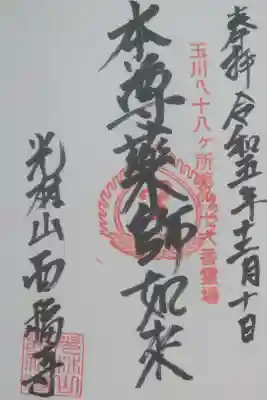 奉拝 令和五年十二月十日
玉川八十八ヶ所第六十六番霊場
本尊薬師如来
光林山西福寺